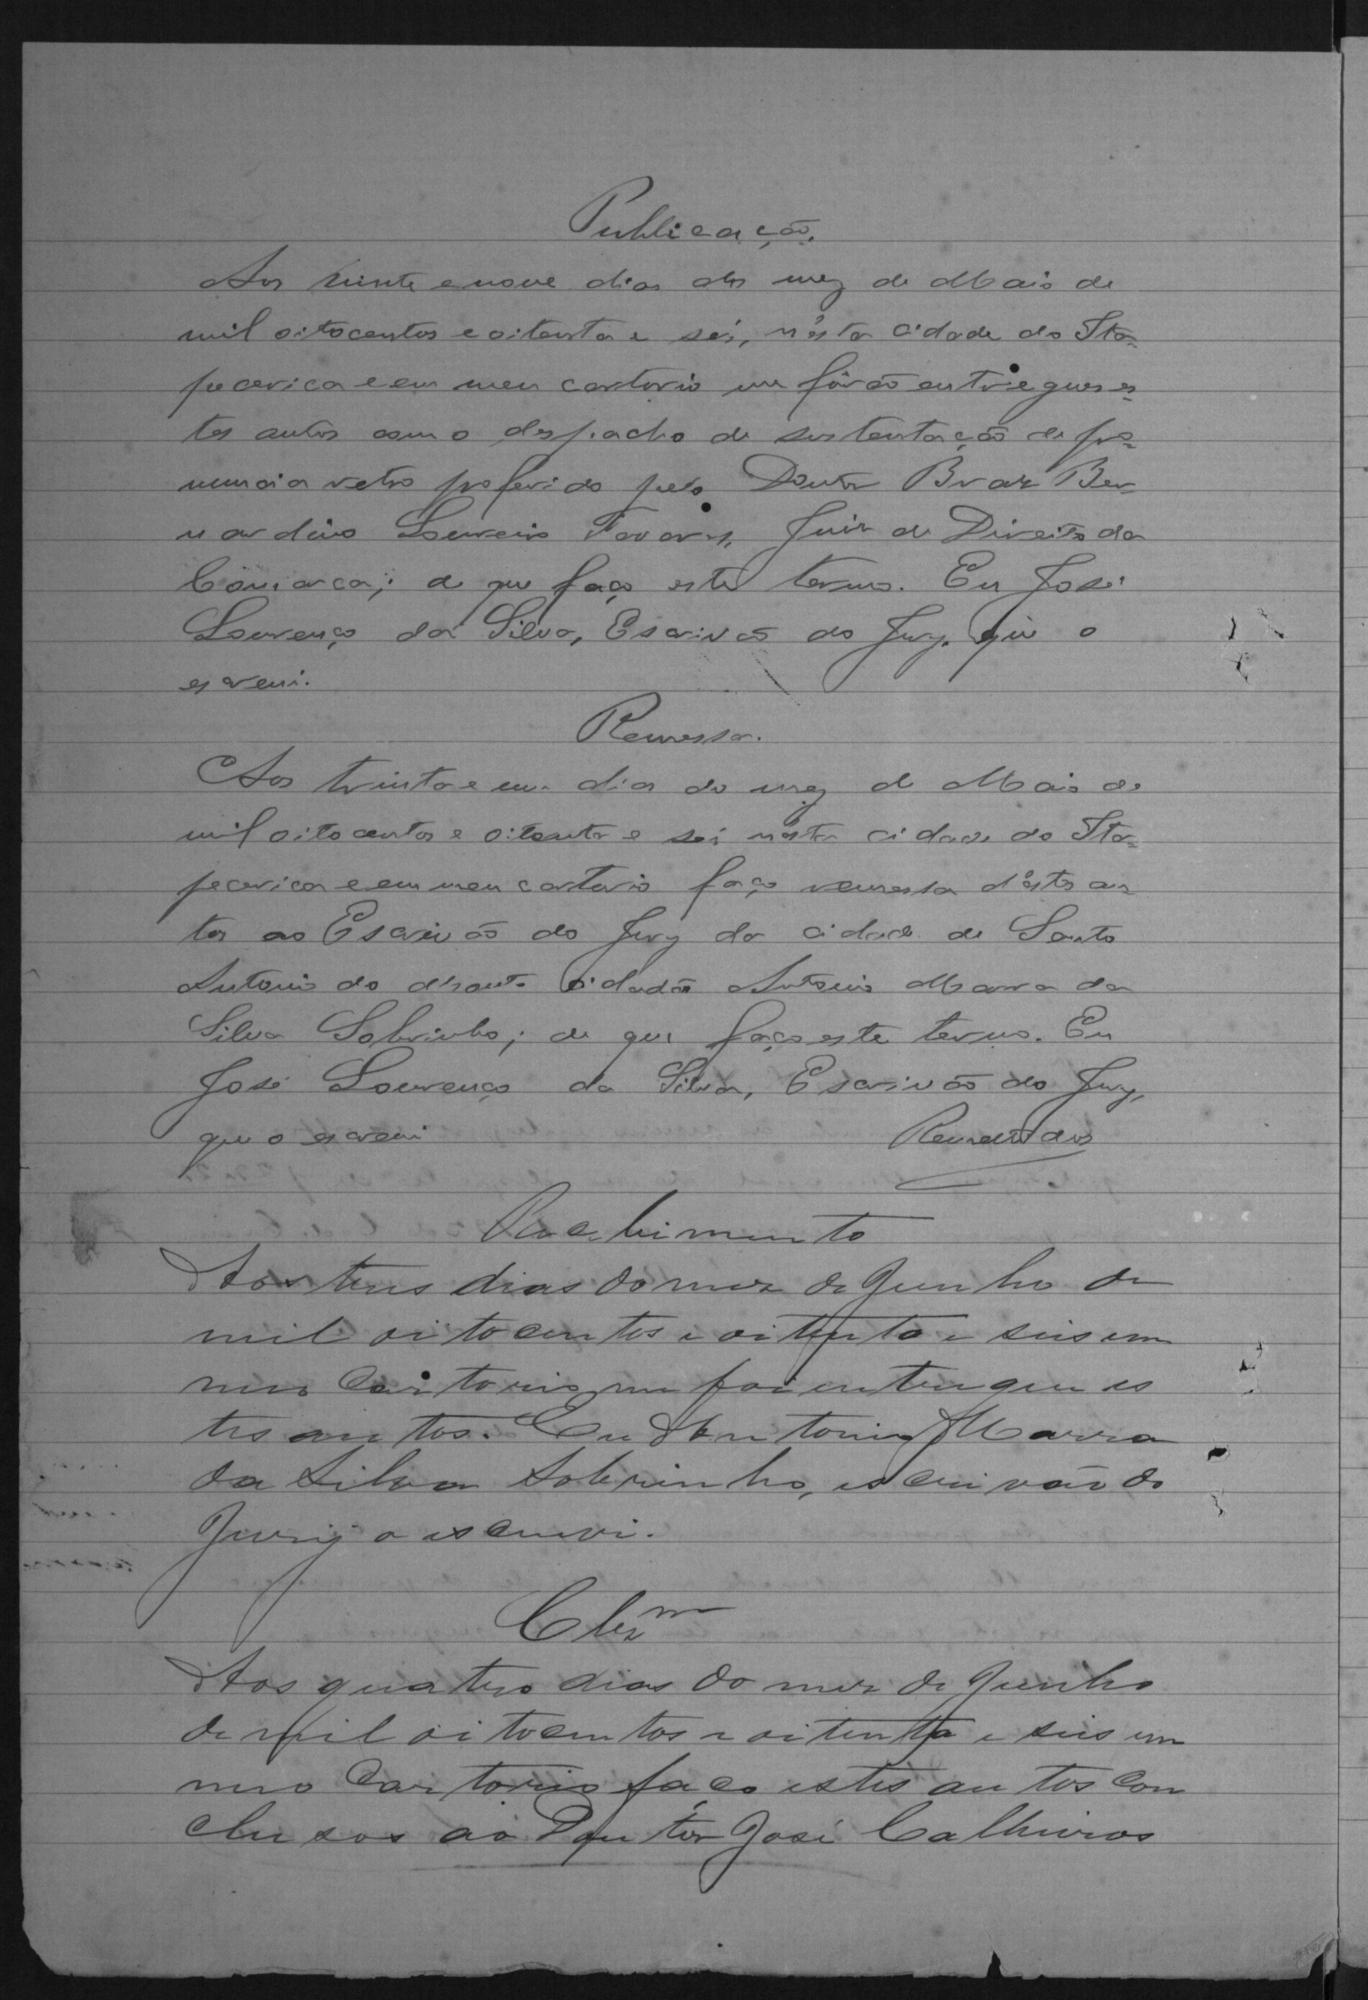 Publicação.
Aos vinte e nove dias do mez de Maio de
mil oitocentos e oitenta e seis, n'esta cidade do Ita=
pecerica e em meu cartorio me fôrão entregues es=
tes autos com o despacho de sustentação de pro=
nuncia retro proferido pelo Doutor Braz Ber
nardino Loureiro Tavares, Juiz de Direito da
Comarca; de que faço este termo. Eu José
Lourenço da Silva, Escrivão do Jury, que o
escrevi.
Remessa.
Aos trinta e um dia do mez de Maio de
mil oitocentos e oitenta e seis n'esta cidade do Ita=
pecerica e em meu cartorio faço remessa d'estes au=
tos ao Escrivão do Jury da cidade de Santo
Antonio do Monte cidadão Antonio Marra da
Silva Sobrinho; de que faço este termo. Eu
José Lourenço da Silva, Escrivão do Jury,
que o escrevi Remettidos
Recebimento
Aos tres dias do mez de Junho de
mil oitocentos e oitenta e seis em
meo Cartorio me foi entregue es
tes autos. Eu Antonio Marra
da Silva Sobrinho, escrivão do
Jury o escrevi.
Clsm
Aos quatro dias do mez de Junho
de mil oitocentos e oitenta e seis em
meo Cartorio faço estes autos Con
clusos ao Doutor José Calheiros